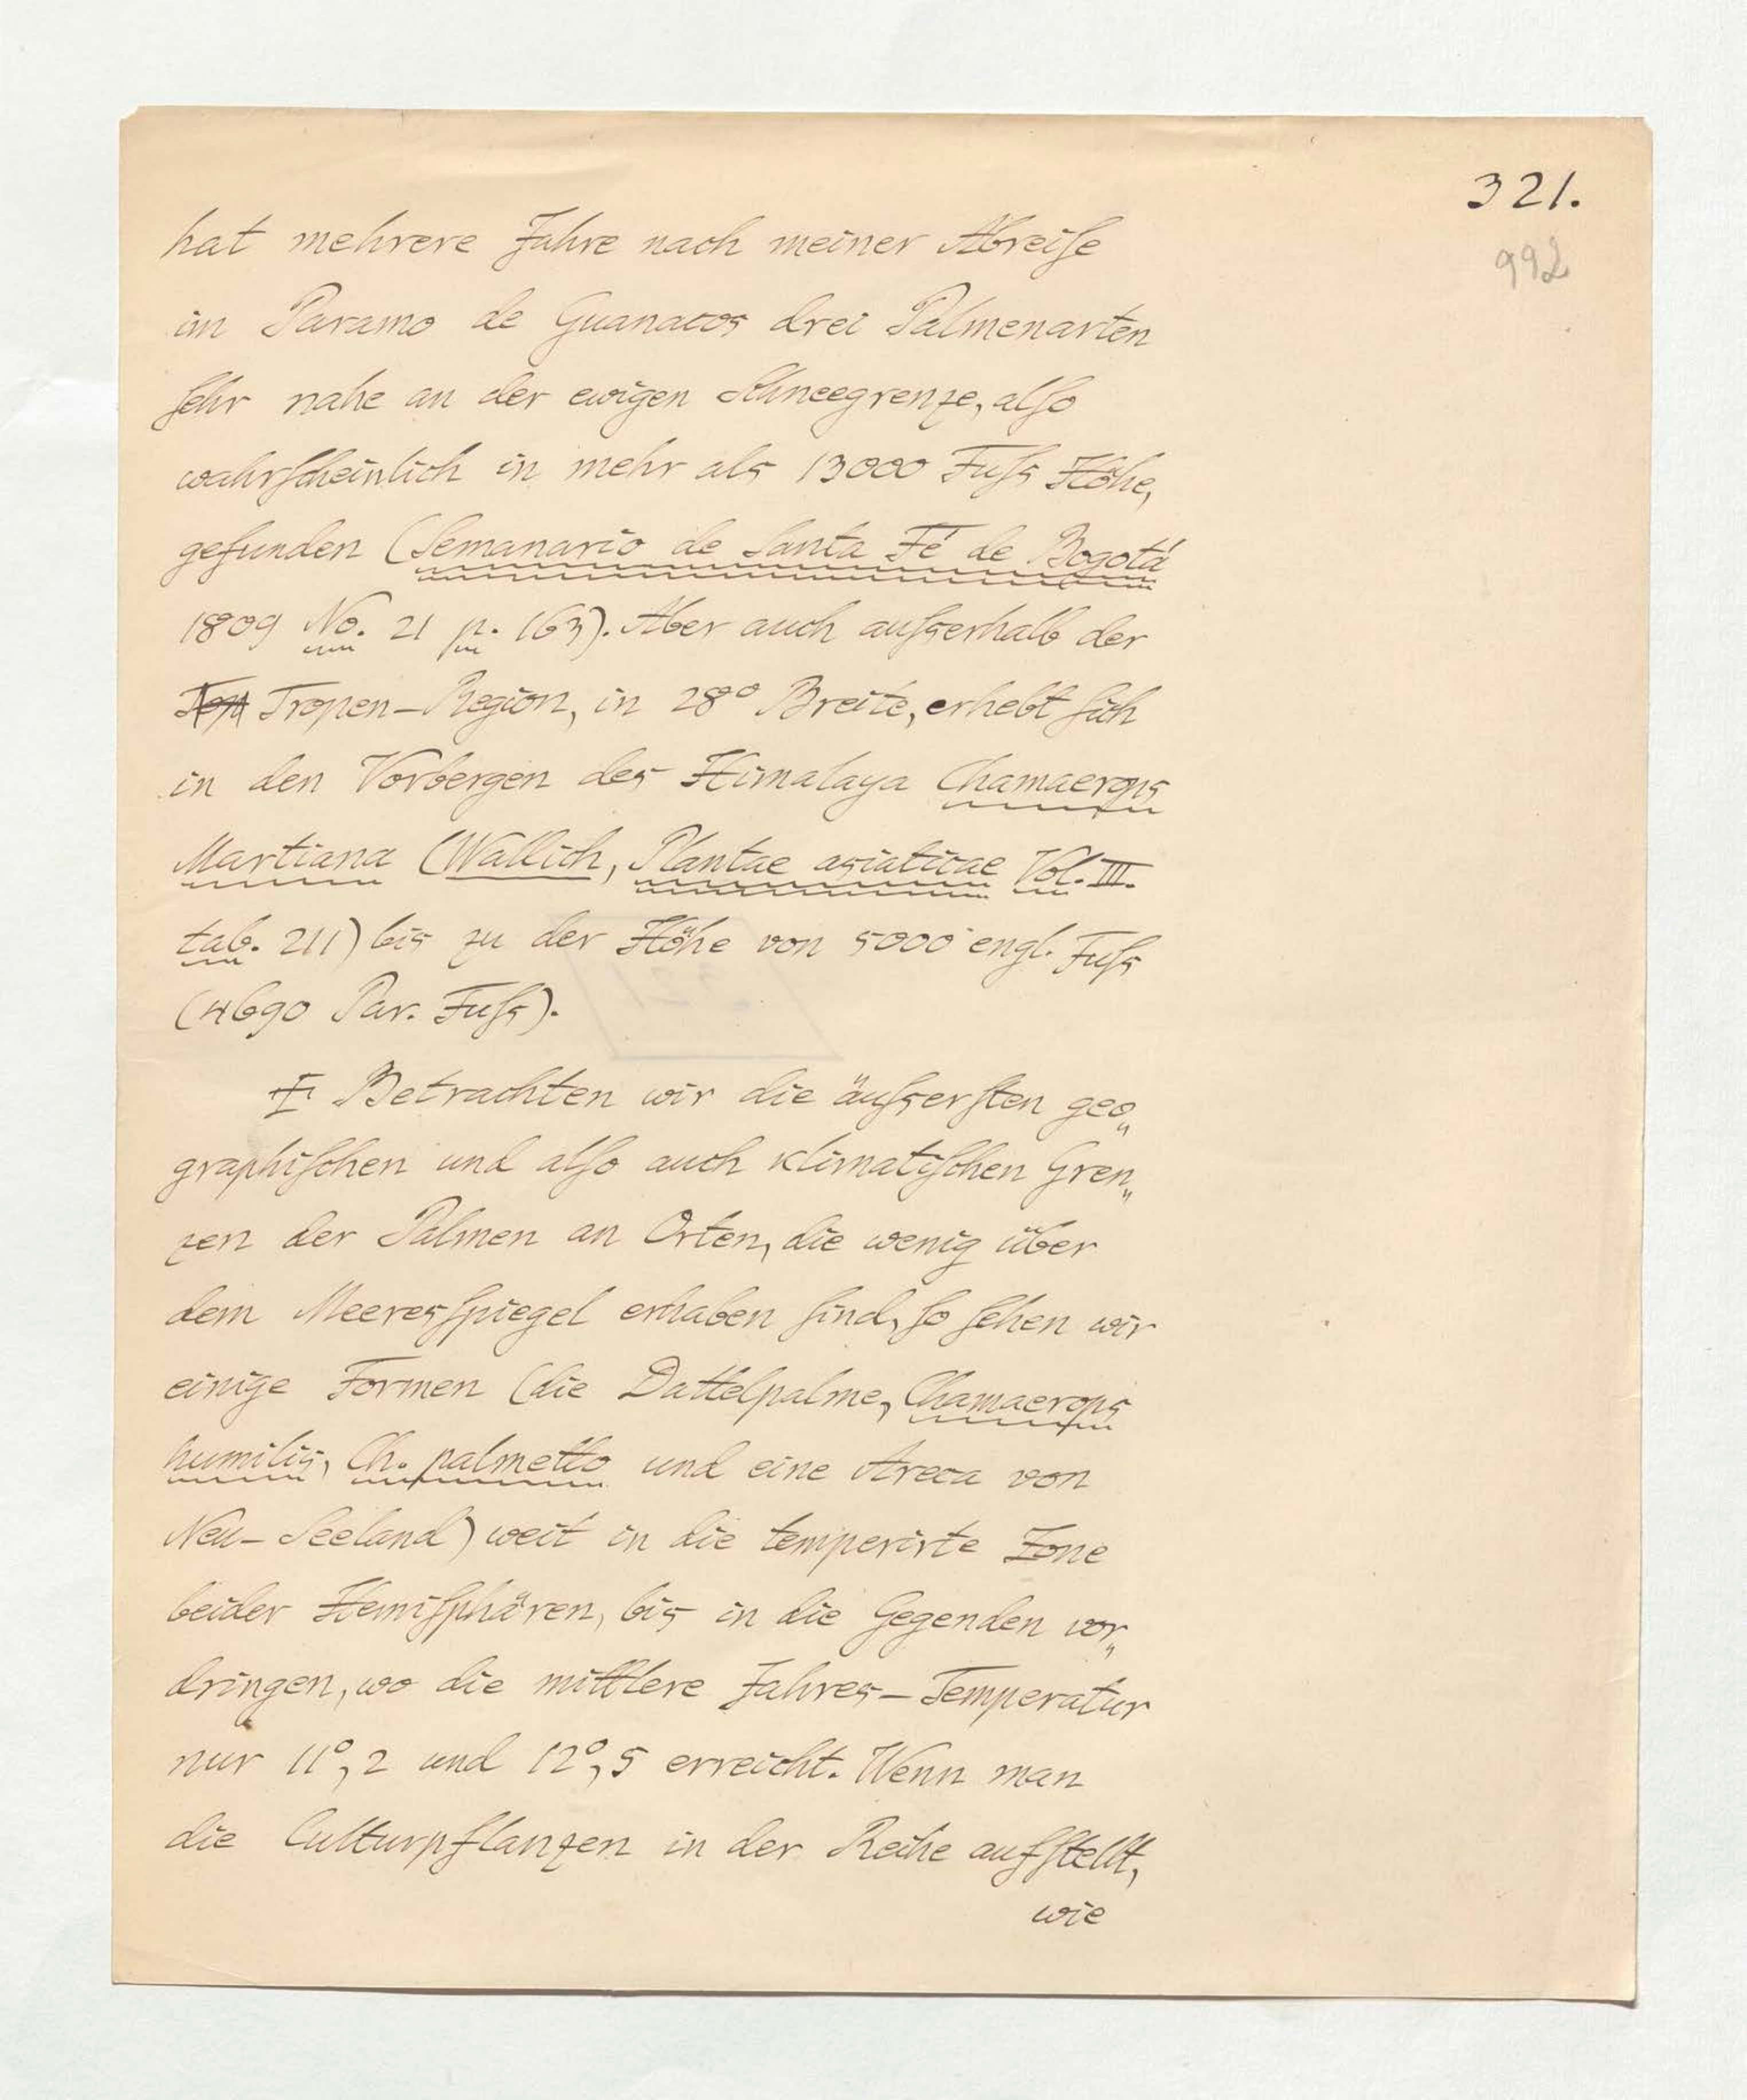 321.
992
hat mehrere Jahre nach meiner Abreiſe
im Paramo de Guanacos drei Palmenarten
ſehr nahe an der ewigen Schneegrenze, alſo
wahrſcheinlich in mehr als 13000 Fuſs Höhe,
gefunden (Semanario de Santa Fé de Bogotá
1809 No. 21 p. 163). Aber auch auſserhalb der
Tropen-Region, in 28° Breite, erhebt ſich
in den Vorbergen des Himalaya Chamaerops
Martiana (Wallich, Plantae asiaticae Vol. III.
tab. 211) bis zu der Höhe von 5000 engl. Fuſs
(4690 Par. Fuſs).
Betrachten wir die äuſserſten geo„
graphiſchen und alſo auch klimatiſchen Gren„
zen der Palmen an Orten, die wenig über
dem Meeresſpiegel erhaben ſind, ſo ſehen wir
einige Formen (die Dattelpalme, Chamaerops
humilis, Ch. palmetto und eine Areca von
Neu-Seeland) weit in die temperirte Zone
beider Hemiſphären, bis in die Gegenden vor„
dringen, wo die mittlere Jahres-Temperatur
nur 11°,2 und 12°,5 erreicht. Wenn man
die Culturpflanzen in der Reihe aufſtellt,
wie